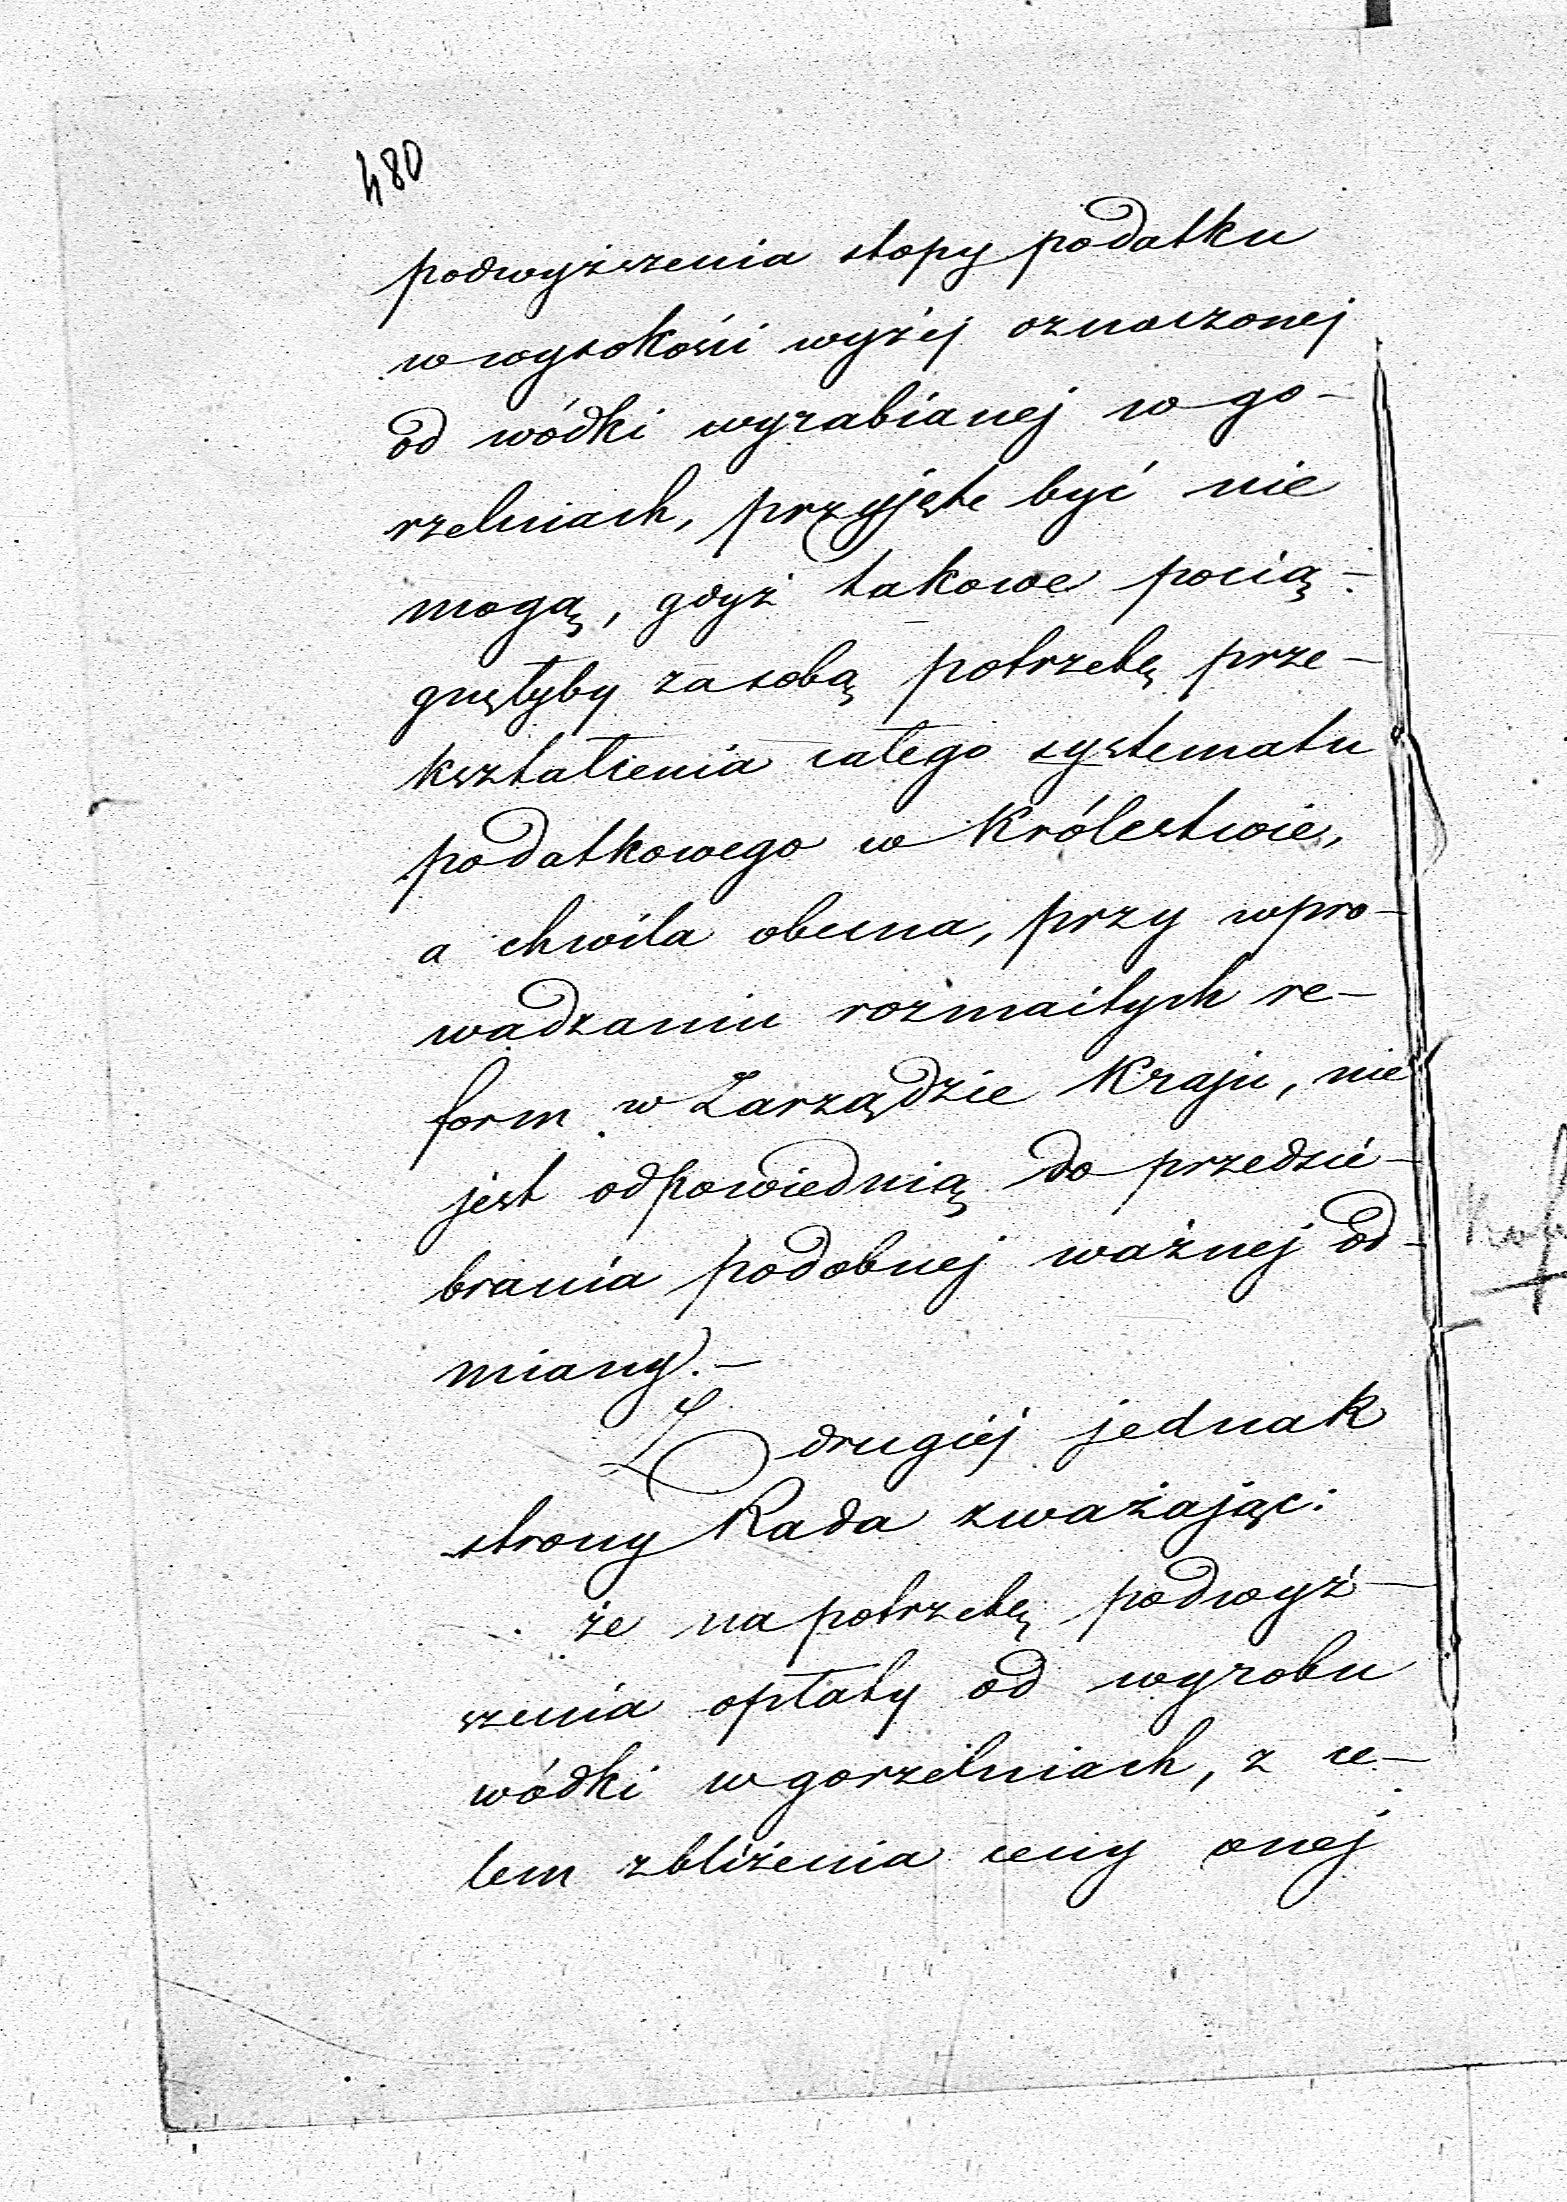 480
podwyższenia stopy podatku
w wysokości wyżej oznaczonej
od wódki wyrabianej w go-
rzelniach, przyjęte być nie
mogą, gdyż takowe pocią-
gnęłyby za sobą potrzebę prze-
kształcenia całego systematu
podatkowego w Królestwie,
a chwila obecna, przy wpro-
wadzaniu rozmaitych re-
form w Zarządzie Kraju, nie
jest odpowiednią do przedsię-
brania podobnej ważnej od-
miany.-
Z drugiéj jednak
strony Rada zważając:
że na potrzebę podwyż-
szenia opłaty od wyrobu
wódki w gorzelniach, z ce-
lem zbliżenia ceny onej